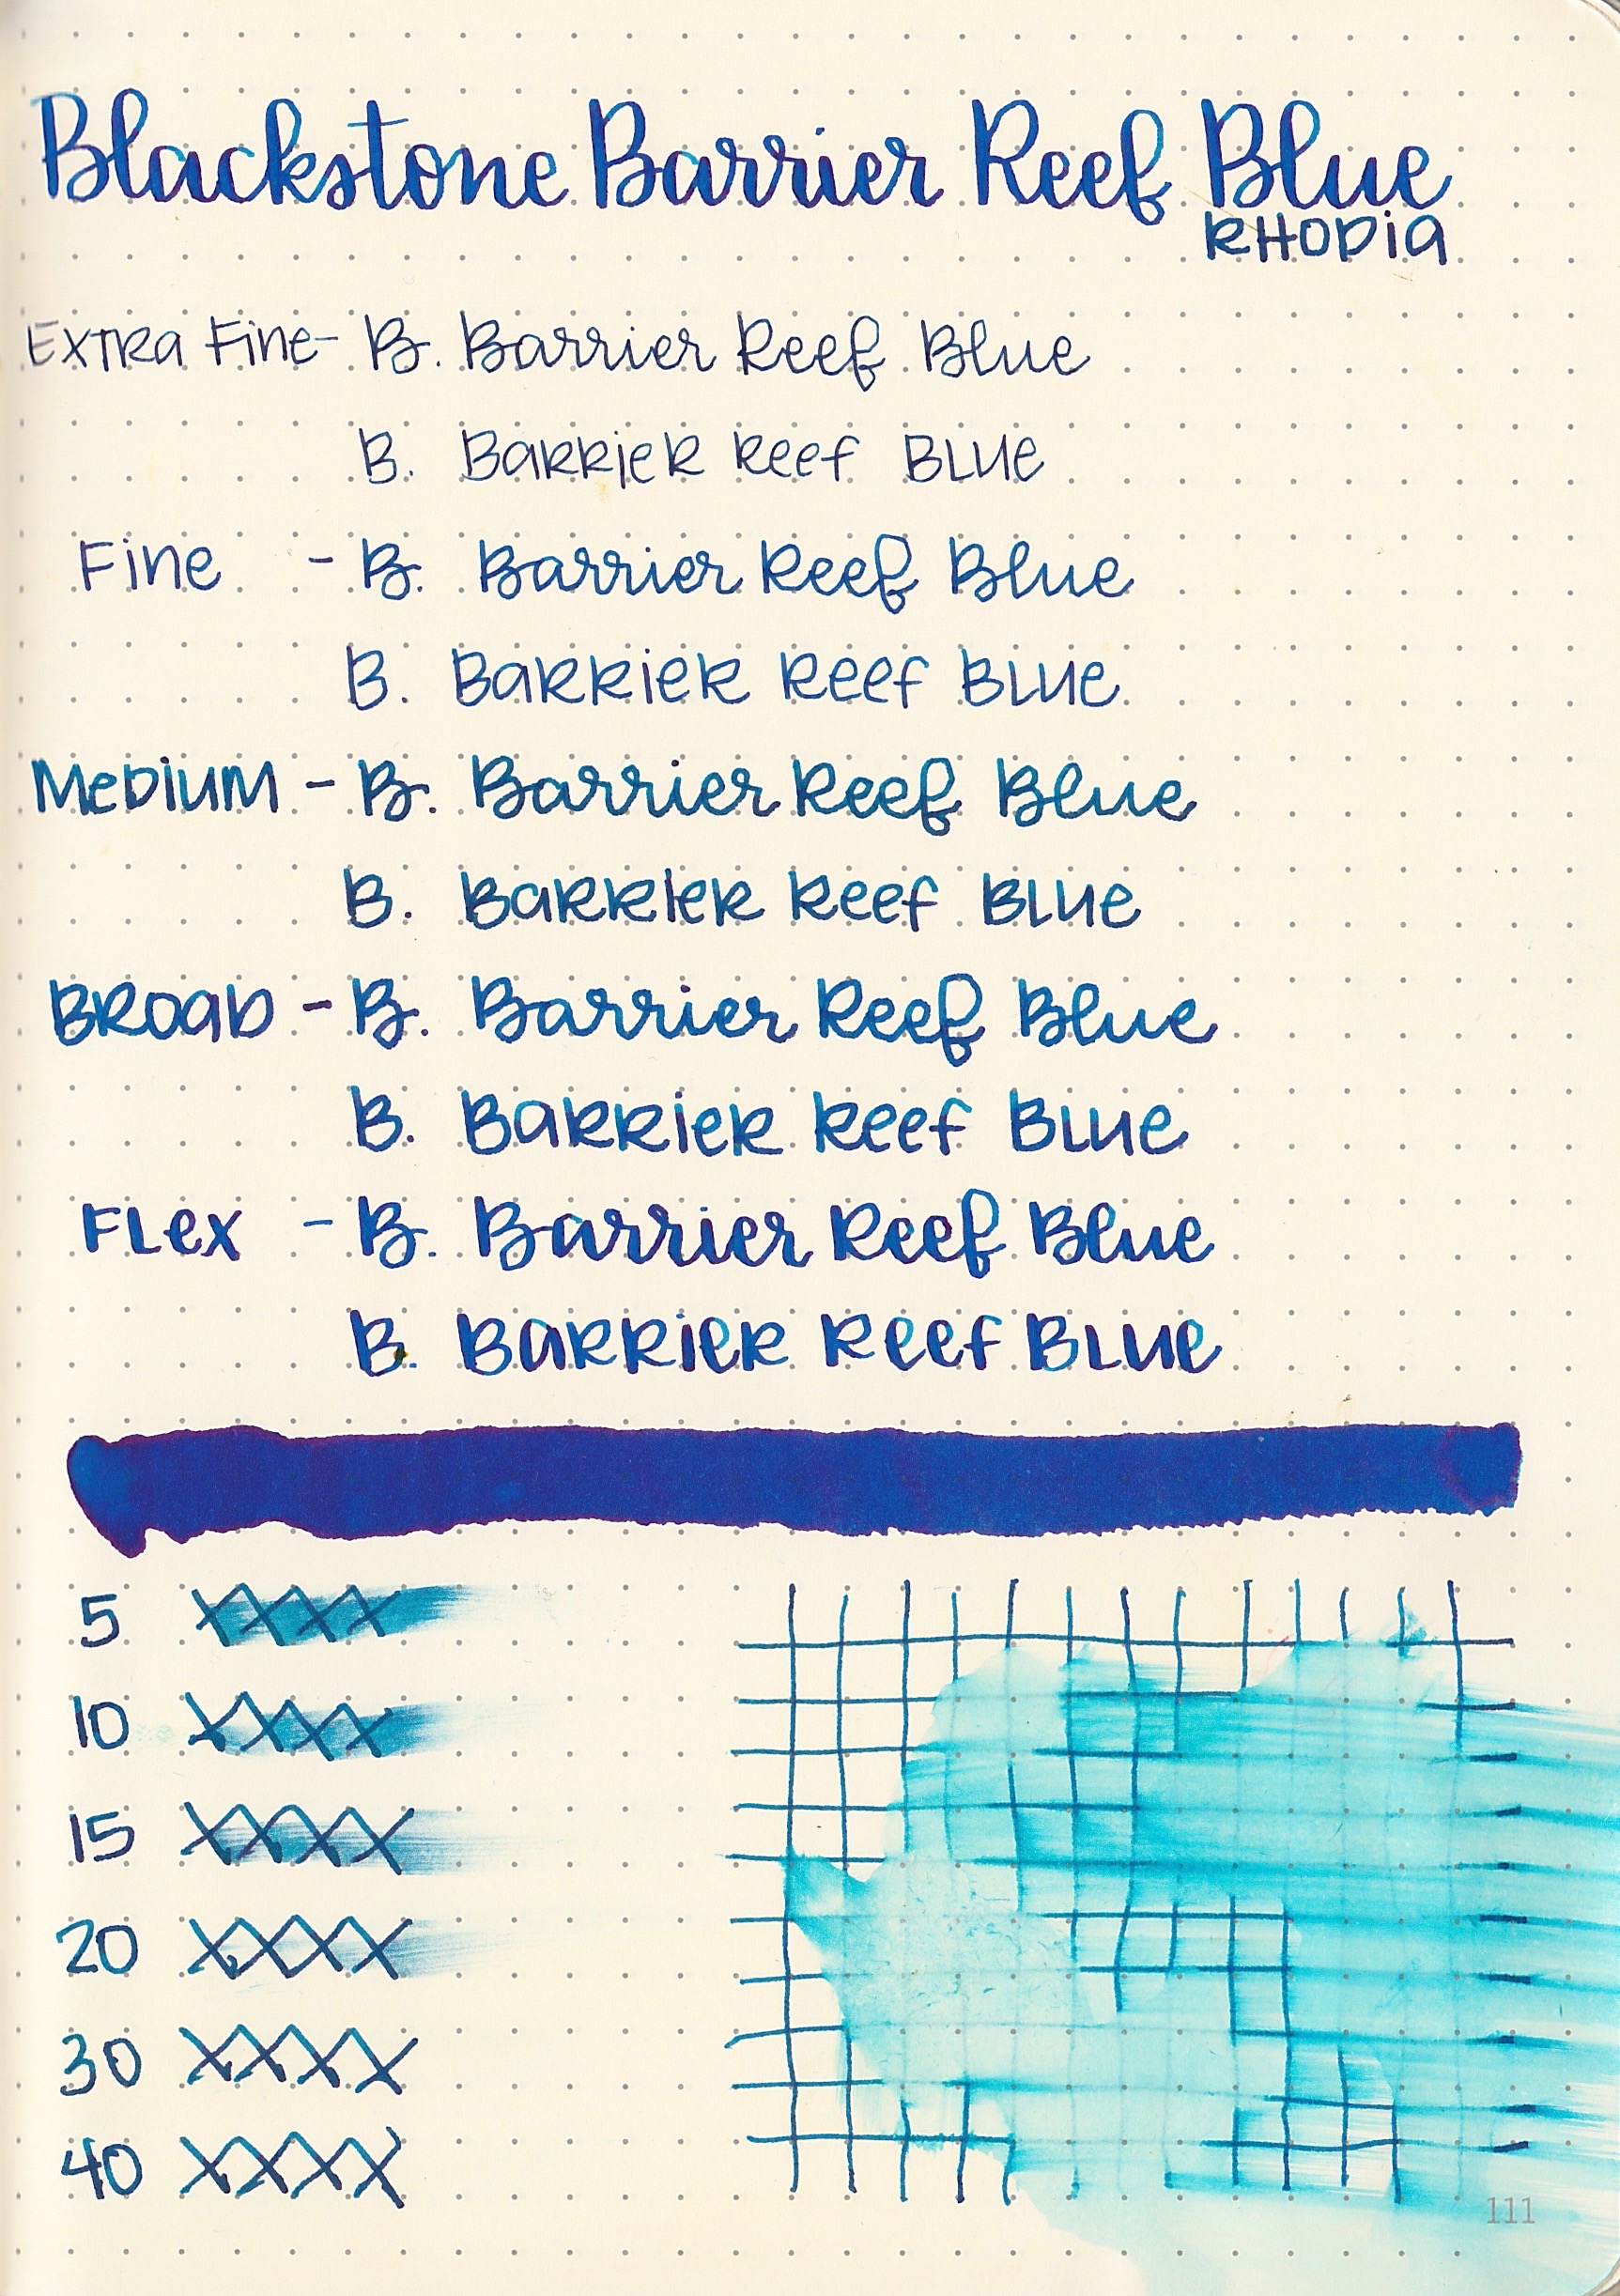 Blackstone Barrier Reef Blue
RHODia
EXTRa Fine - B. Barrier Reef Blue
B. BaRRieR Reef BLUe
Fine - B. Barrier Reef Blue
B. BaRRieR Reef BLUe
MeDiUM - B. Barrier Reef Blue
B. BaRRieR Reef BLUe
BROaD - B. Barrier Reef Blue
B. BaRRieR Reef BLUe
FLex - B. Barrier Reef Blue
B. BaRRieR Reef BLUe
5 XXXX
10 XXXX
15 XXXX
20 XXXX
30 XXXX
40 XXXX
111